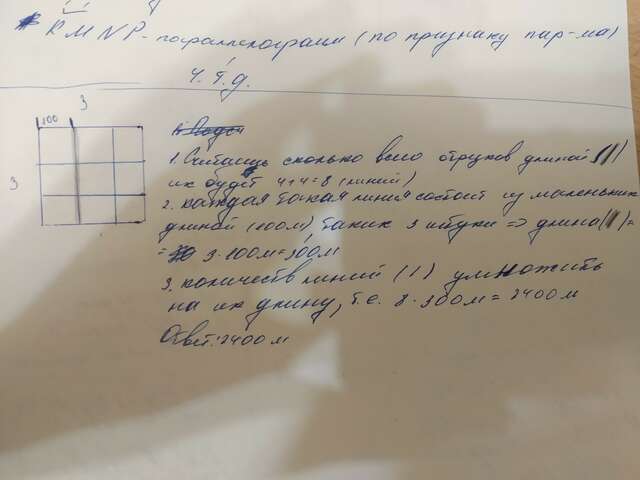 KMNP - параллелограмм (по признику пар-ма)
ч.т.д.
3
100
3
1. Считаешь сколько всего отрезков длиной (|)
их будет 4+4=8 (линий)
2. каждая такая линия состоит из маленьких
длиной (100м), таких 3 штуки => длина (|) =
= 3·100м=300м
3. количеств линий (|) умножить
на их длину, т.е. 8·300м = 2400м
Ответ: 2400м